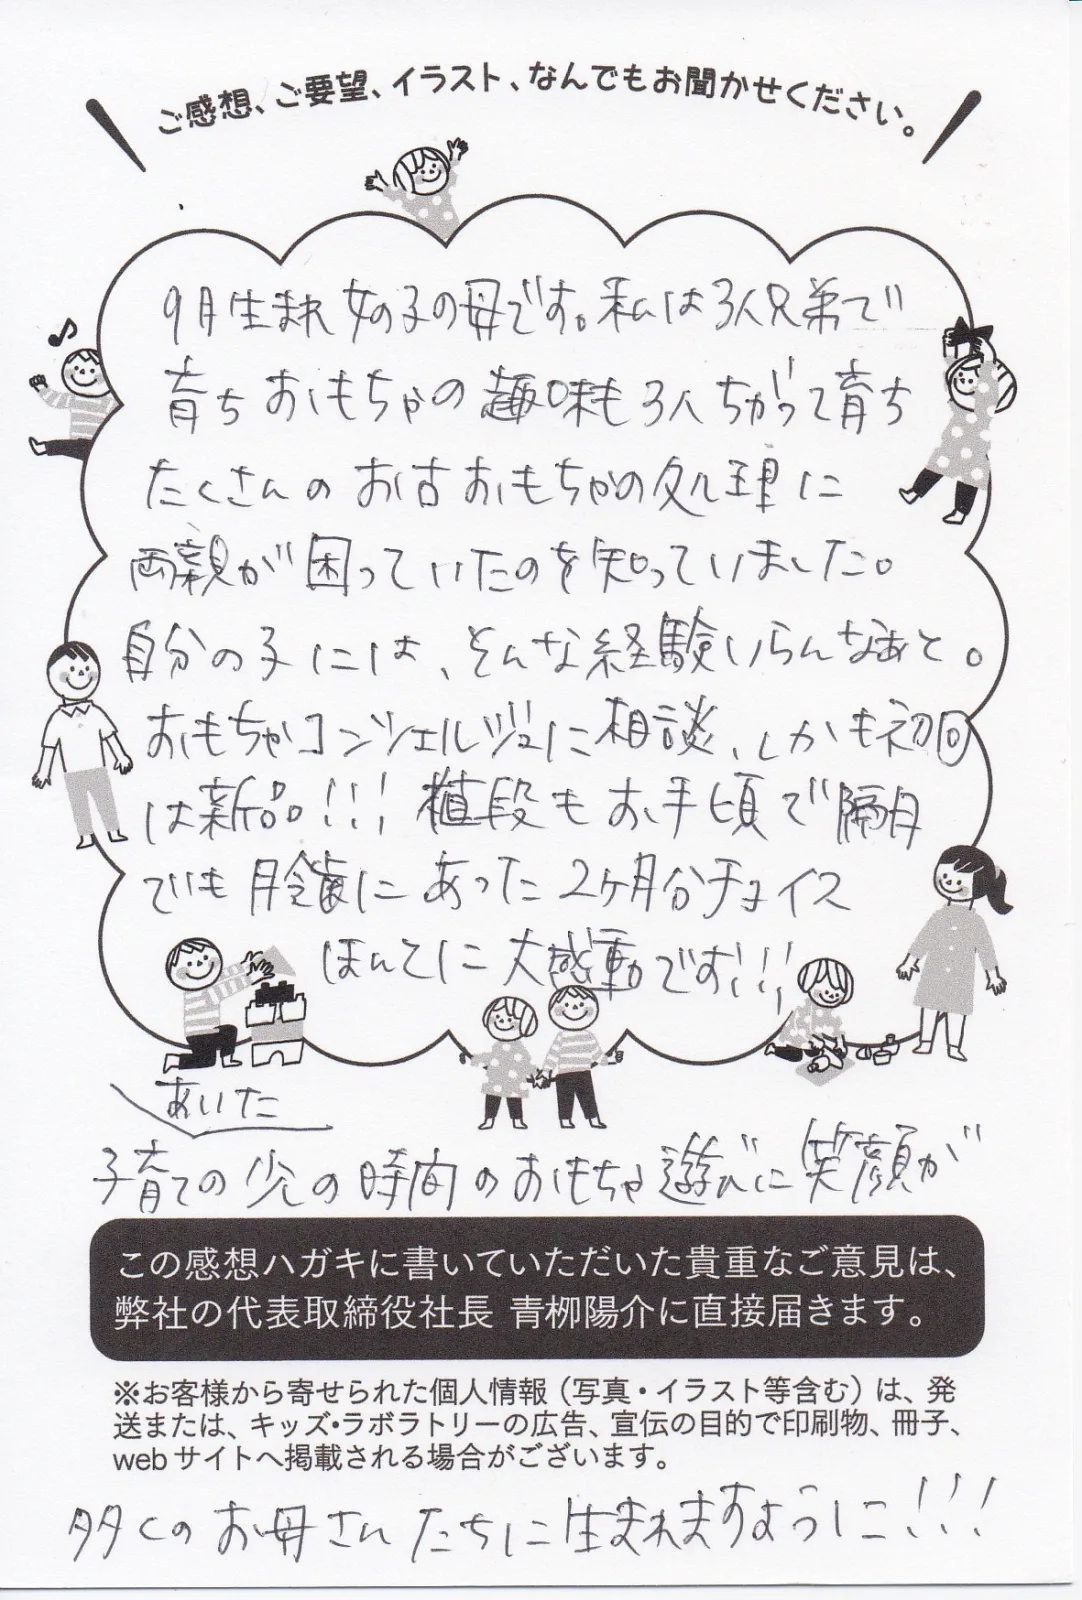 ご感想、ご要望、イラスト、なんでもお聞かせください。
9月生まれ 女の子の母です。私は3人兄弟で
育ち おもちゃの 趣味も 3人 ちがって育ち
たくさんの お古おもちゃの処理に
両親が 困っていたのを知っていました。
自分の子には、そんな経験いらんなぁと。
おもちゃコンシェルジュに相談、しかも初回
は新品!!! 値段も お手頃で 隔月
でも 月齢に あった 2ヶ月分チョイス
ほんとに 大感動です!!!
あいた
子育ての 少しの 時間 のおもちゃ 遊びに 笑顔が
この感想ハガキに書いていただいた貴重なご意見は、
弊社の代表取締役社長 青栁陽介に直接届きます。
※お客様から寄せられた個人情報（写真・イラスト等含む）は、発
送または、キッズ・ラボラトリーの広告、宣伝の目的で印刷物、冊子、
webサイトへ掲載される場合がございます。
多くの お母さん たちに 生まれますように!!!